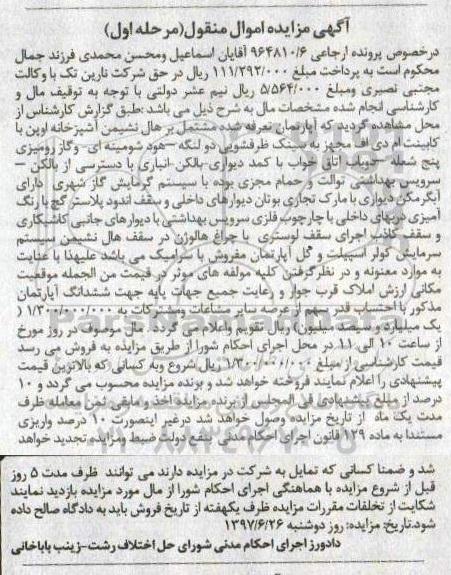 آگهی مزایده اموال منقول(مرحله اول)
درخصوص پرونده ارجاعی ۹۶۴۸۱۰/۶ آقایان اسماعیل ومحسن محمدی فرزند جمال
محکوم است به پرداخت مبلغ ۱۱۱/۲۹۲/۰۰۰ ریال در حق شرکت نارین تک با وکالت
مجتبی نصیری ومبلغ ۵/۵۶۴/۰۰۰ ریال نیم عشر دولتی با توجه به توقیف مال و
کارشناسی انجام شده مشخصات مال به شرح ذیل می باشد :طبق گزارش کارشناس از
محل مشاهده گردید که آپارتمان تعرفه شده مشتمل بر هال نشیمن آشپزخانه اوپن با
کابینت ام دی اف مجهز به سینک ظرفشویی دو لنگه –هود شومینه ای- وگاز رومیزی
پنج شعله –دوباب اتاق خواب با کمد دیواری-بالکن-انباری با دسترسی از بالکن –
سرویس بهداشتی توالت و حمام مجزی بوده با سیستم گرمایش گاز شهری - دارای
آبگرمکن دیواری با مارک تجاری بوتان دیوارهای داخلی و سقف اندود پلاستر گچ با رنگ
آمیزی دربهای داخلی با چارچوب فلزی سرویس بهداشتی با دیوارهای جانبی کاشیکاری
و سقف کاذب اجرای سقف لوستری با چراغ هالوژن در سقف هال نشیمن سیستم
سرمایش کولر اسپیلت و کل آپارتمان مفروش با سرامیک می باشد علیهذا با عنایت
به موارد معنونه و در نظرگرفتن کلیه مولفه های موثر در قیمت من الجمله موقعیت
مکانی ارزش املاک قرب جوار و رعایت جمیع جهات پایه جهت ششدانگ آپارتمان
مذکور با احتساب قدر سهم از عرصه سایر مشاعات ومشترکات به ۱/۳۰۰/۰۰۰/۰۰۰ (
یک میلیارد و سیصد میلیون) ریال تقویم واعلام می گردد. مال موصوف در روز مورخ
از ساعت ۱۰ الی ۱۱ در محل اجرای احکام شورا از طریق مزایده به فروش می رسد
قیمت کارشناسی از مبلغ ۱/۳۰۰/۰۰۰/۰۰۰ ریال شروع وبه کسانی که بالاترین قیمت
پیشنهادی را اعلام نمایند فروخته خواهد شد و برنده مزایده محسوب می گردد و ۱۰
درصد از مبلغ پیشنهادی فی المجلس از برنده مزایده اخذ و مابقی ثمن معامله ظرف
مدت یک ماه از تاریخ مزایده وصول خواهد شد درغیر اینصورت ۱۰ درصد واریزی
مستندا به ماده ۱۲۹ قانون اجرای احکام مدنی بنفع دولت ضبط ومزایده تجدید خواهد
شد و ضمنا کسانی که تمایل به شرکت در مزایده دارند می توانند ظرف مدت ۵ روز
قبل از شروع مزایده با هماهنگی اجرای احکام شورا از مال مورد مزایده بازدید نمایند
شکایت از تخلفات مقررات مزایده ظرف یکهفته از تاریخ فروش باید به دادگاه صالح داده
شود.تاریخ مزایده: روز دوشنبه ۱۳۹۷/۶/۲۶
دادورز اجرای احکام مدنی شورای حل اختلاف رشت-زینب باباخانی